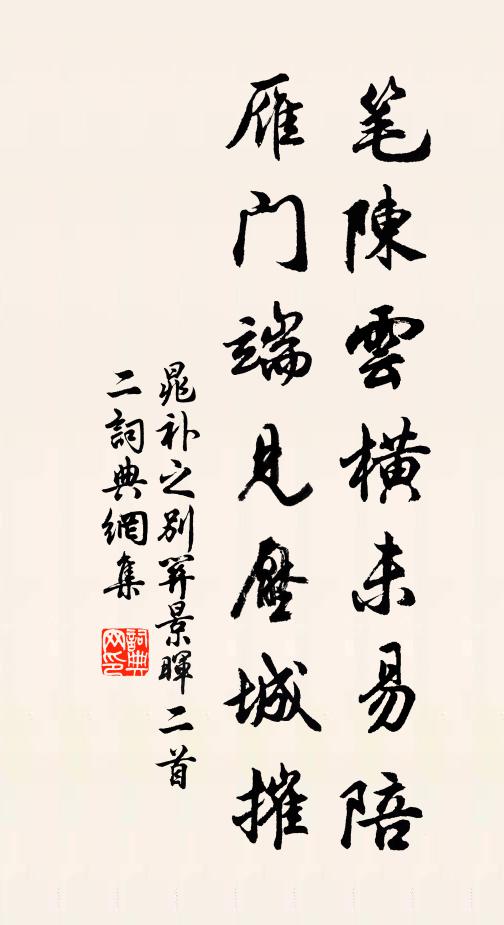 笔陳雲橫未易陪
雁门端見壓城摧
晁补之别景暉二首
二詞典網集
詞典网印